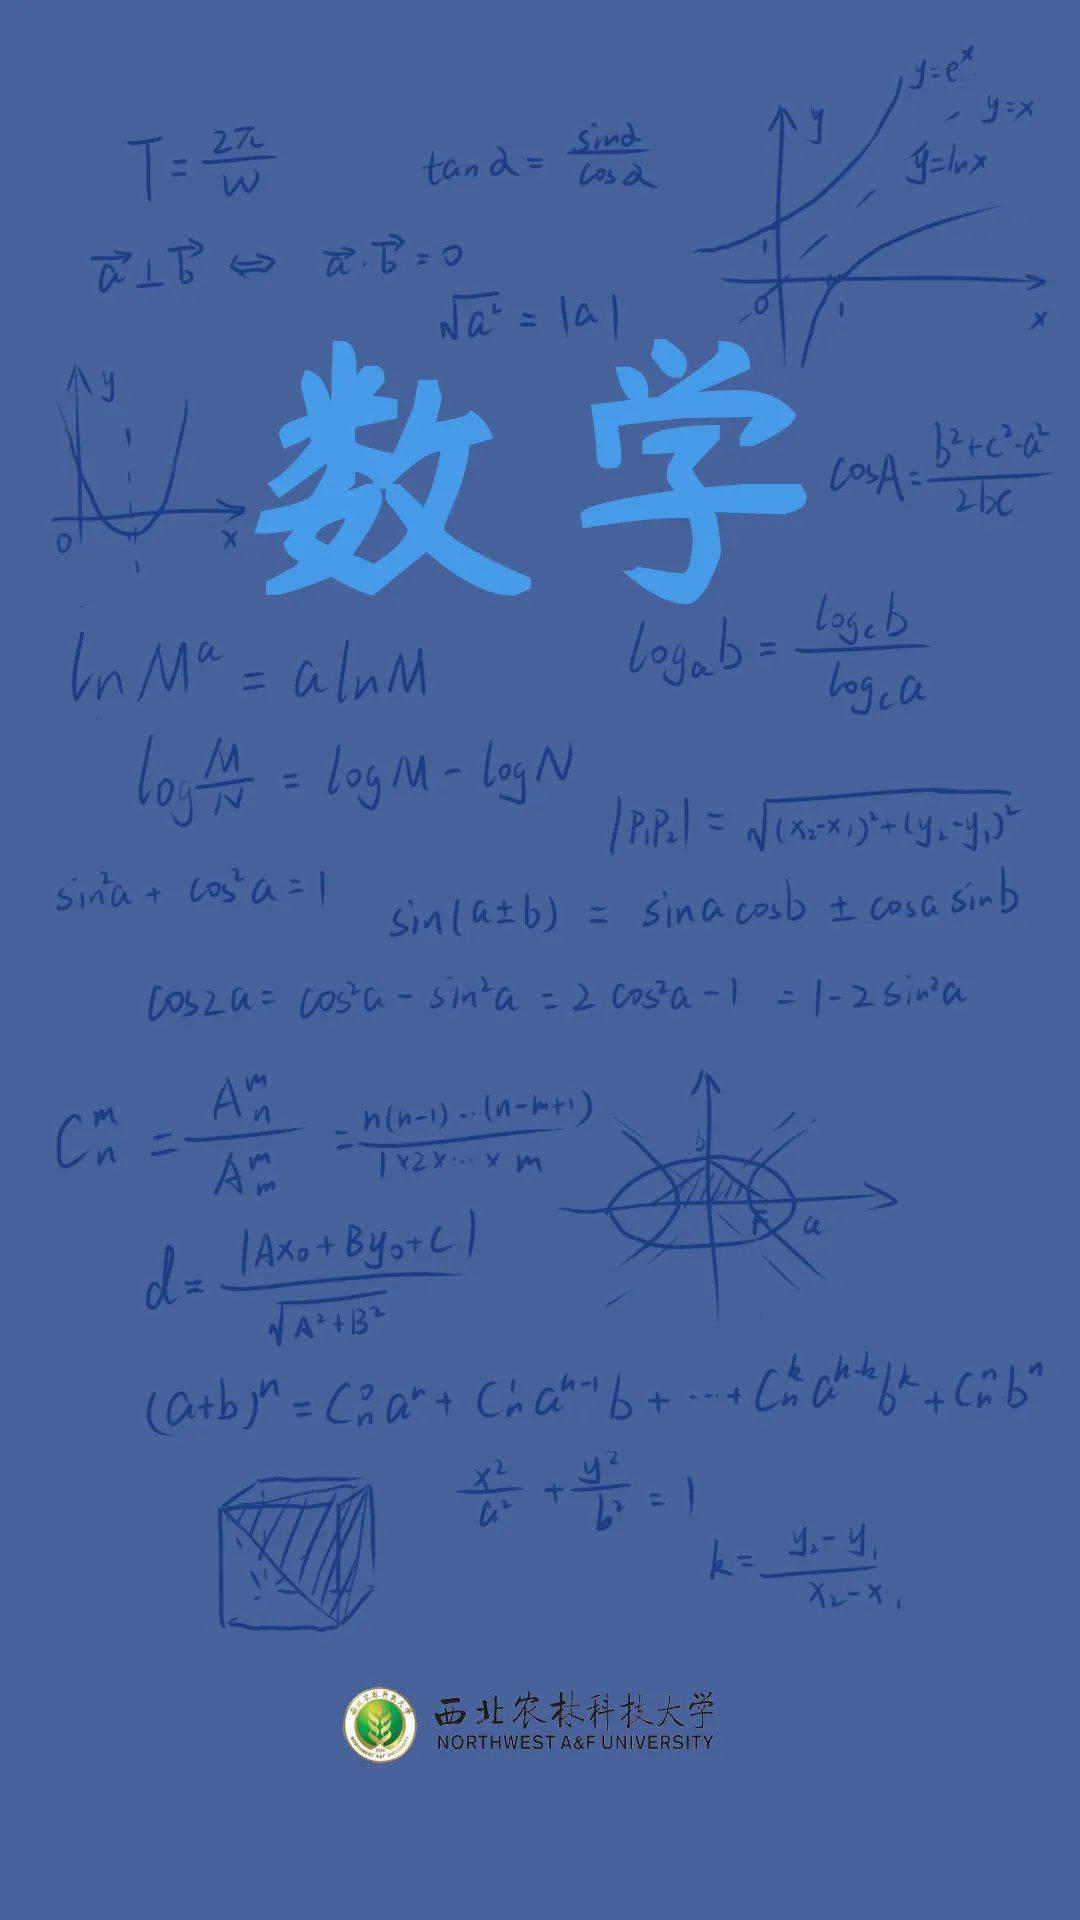 y=eˣ
y=x
y=lnx
y
0
1
1
x
T=2π/w
tanα=sinα/cosα
a⃗⊥b⃗ ⇔ a⃗·b⃗=0
√a²=|a|
数学
y
0
1
x
cosA=b²+c²-a²/2bc
lnMᵃ=alnM
logₐb=log_c b/log_c a
log M/N = logM-logN
|P₁P₂|=√(x₂-x₁)²+(y₂-y₁)²
sin²a+cos²a=1
sin(a±b)=sina cosb±cosa sinb
cos2a=cos²a-sin²a=2cos²a-1=1-2sin²a
C_n^m=A_n^m/A_m^m=n(n-1)...(n-m+1)/1×2×...×m
b
F
a
d=|Ax₀+By₀+C|/√A²+B²
(a+b)ⁿ=C_n^0 aⁿ+C_n^1 aⁿ⁻¹b+...+C_n^k aⁿ⁻ᵏbᵏ+C_n^n bⁿ
x²/a²+y²/b²=1
k=y₂-y₁/x₂-x₁
西北农林科技大学
NORTHWEST A&F UNIVERSITY